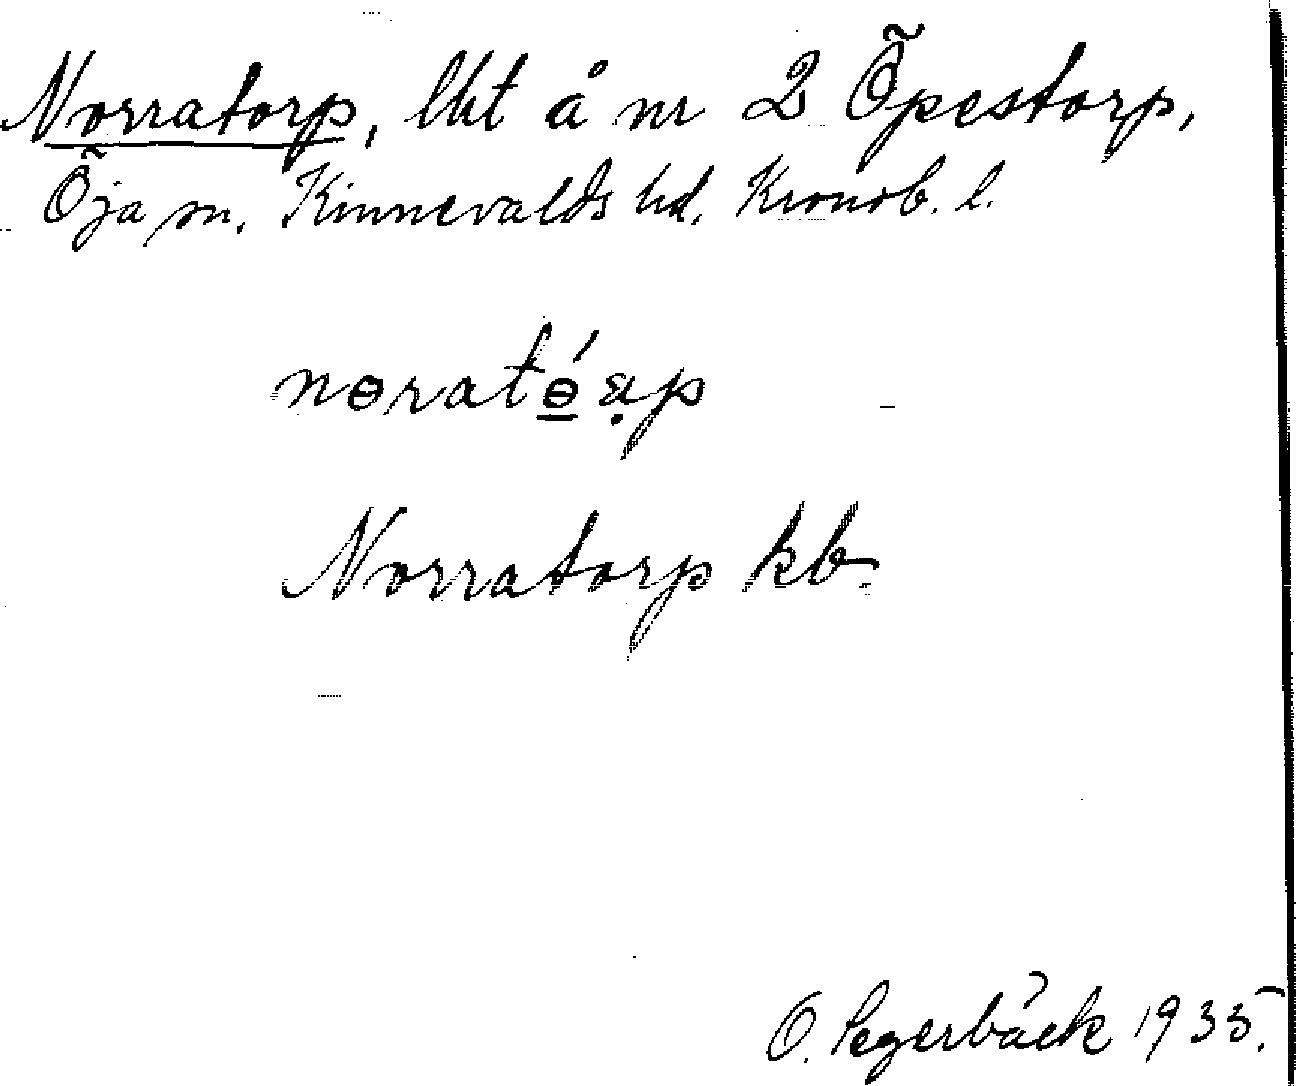 Norratorp, lht å nr 2 Öpestorp,
Öja sn. Kinnevalds hd. Kronob. l.
Norratorp kb.
O. Segerbäck 1935.